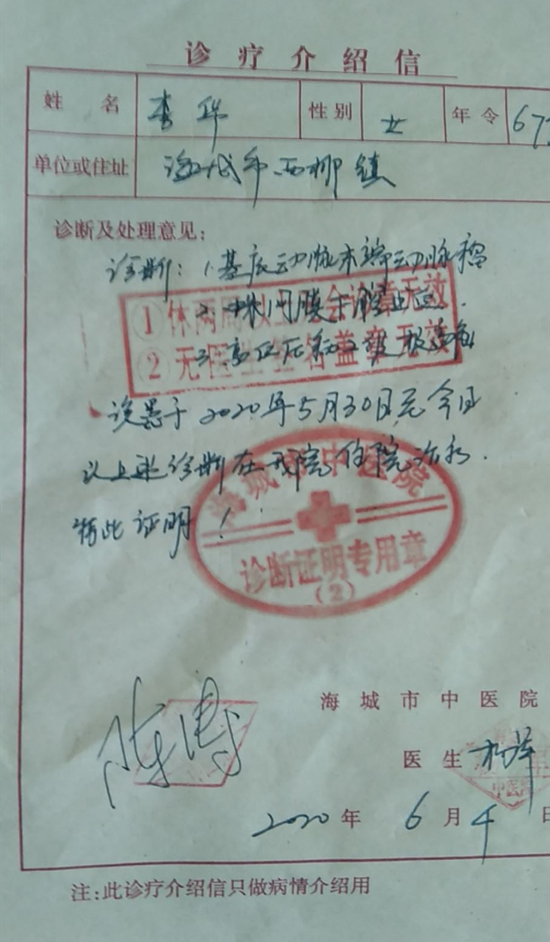 诊疗介绍信
姓名 李华 性别 女 年令 67
单位或住址 海城市西柳镇
诊断及处理意见:
诊断:1.基底动脉末端动脉瘤
2.蛛网膜下腔出血.
3.高血压
①休两周 会诊章无效
②无 盖章无效
该患于2020年5月30日至今日
以上述诊断在我院住院治疗.
特此证明!
海城市中医院
诊断证明专用章
(2)
海城市中医院
医生
2020年6月4日
注:此诊疗介绍信只做病情介绍用